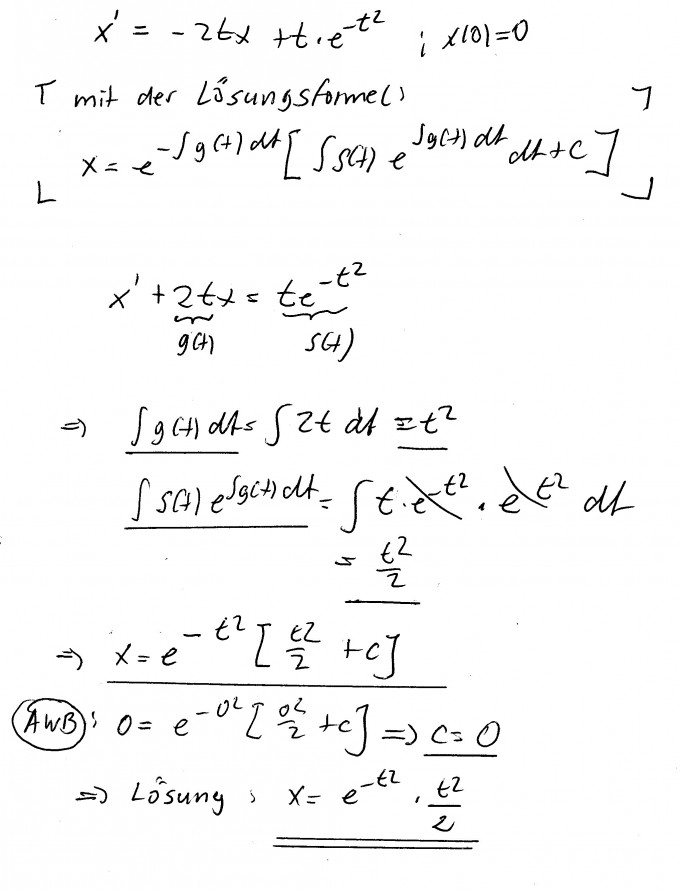 x' = -2tx + t·e^{-t^2} ; x(0)=0
mit der Lösungsformel:
x = e^{-∫g(t) dt} [∫ s(t) e^{∫g(t) dt} dt + c]
x' + 2tx = te^{-t^2}
g(t) s(t)
⇒ ∫g(t) dt = ∫ 2t dt = t^2
∫ s(t) e^{∫g(t) dt} = ∫ t·e^{-t^2} · e^{t^2} dt
= t^2/2
⇒ x = e^{-t^2} [t^2/2 + c]
AWB: 0 = e^{-0^2} [0^2/2 + c] ⇒ c = 0
⇒ Lösung: x = e^{-t^2} · t^2/2